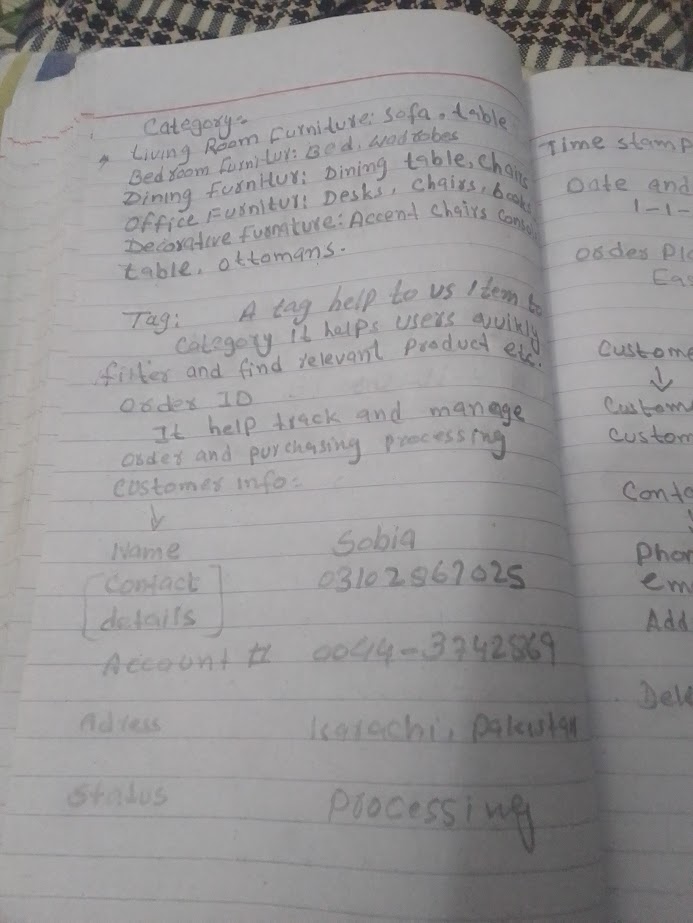 Category:-
Living Room Furniture: Sofa, table
Bedroom Furnitur: Bed, wadrobes
Dining Furnitur: Dining table, Chairs
Office Furnitur: Desks, Chairs, book
Decorative Furniture: Accent Chairs Conso
table, ottomans.
Tag: A tag help to us Item to
Category it helps users quikly
filter and find relevant product etc.
Order ID
It help track and manage
order and purchasing processing
Customer info:
↓
Name Sobia
[Contact 03102967025
details]
Account # 0044-3742869
Adress Karachi, Pakistan
Status Processing
Time stamp
Date and
1-1-
Order Pla
Eas
Custome
↓
Custom
Custom
Conta
Phon
em
Add
Deli